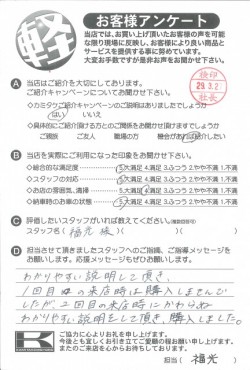 軽
お客様アンケート
当店では、お買い上げ頂いたお客様の声を可能
な限り現場に反映し、お客様により良い商品と
サービスを提供する事に努めています。
大変お手数ですが是非お声をお聞かせ下さい。
A 当店はご紹介を大切にしております。
ご紹介キャンペーンについてお聞かせ下さい。
検印
29.3.2
社長
◇カミタケご紹介キャンペーンのご説明はありましたでしょうか
はい いいえ
◇具体的にご紹介頂ける方とのご関係をお聞かせ頂けますでしょうか
ご親族 ご友人 職場の方 機会があれば紹介したい
B 当店を実際にご利用になった印象をお聞かせ下さい。
◇総合的な満足度 5.大満足 4.満足 3.ふつう 2.やや不満 1.不満
◇スタッフの対応 5.大満足 4.満足 3.ふつう 2.やや不満 1.不満
◇お店の雰囲気、清掃 5.大満足 4.満足 3.ふつう 2.やや不満 1.不満
◇納車時のお車の状態 5.大満足 4.満足 3.ふつう 2.やや不満 1.不満
C 評価したいスタッフがいれば教えてください。(複数回答可)
スタッフ名( 福光 様 )( )
D 担当させて頂きましたスタッフへのご指摘、ご指導メッセージを
お願いします。応援メッセージもぜひお願いします。
わかりやすい説明して頂き、
1回目の来店時は購入しませんで
したが 2回目の来店時にかわらぬ
わかりやすい説明をして頂き、購入しました。
ご協力に心よりお礼を申し上げます。
今後とも宜しくお引き立てご愛顧の程お願い申し上げます。
またのご来店を心からお待ちしております。
担当( 福光 )